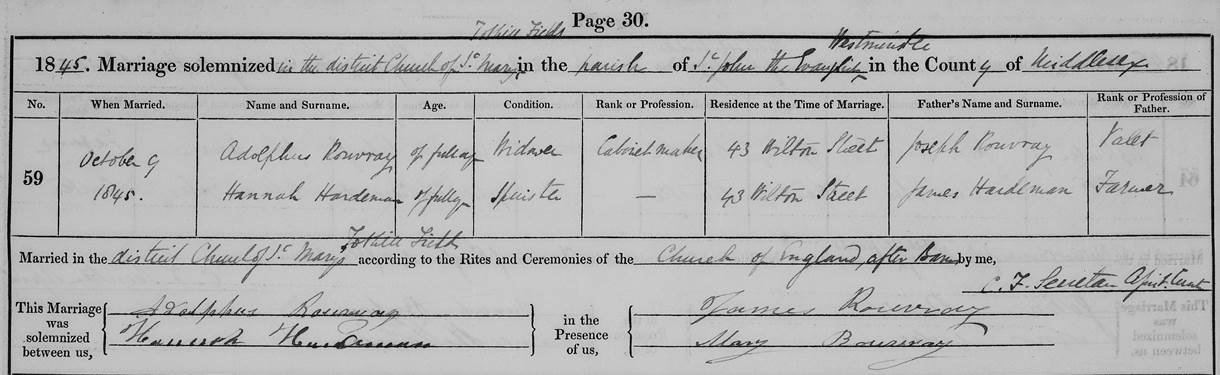 Page 30.
Tothill Fields
Westminster
1845. Marriage solemnized in the district Church of St. Mary's in the parish of St. John the Evangelist in the County of Middlesex
No. When Married. Name and Surname. Age. Condition. Rank or Profession. Residence at the Time of Marriage. Father's Name and Surname. Rank or Profession of Father.
59 October 9 1845.
Adolphus Rouvray of full age Widower Cabinet maker 43 Wilton Street Joseph Rouvray Valet
Hannah Hardeman of full age Spinster — 43 Wilton Street James Hardeman Farmer
Tothill Fields
Married in the district Church of St. Mary's according to the Rites and Ceremonies of the Church of England, after Banns by me,
C. F. Secretan
This Marriage was solemnized between us,
Adolphus Rouvray
Hannah Hardeman
in the Presence of us,
James Rouvray
Mary Rouvray